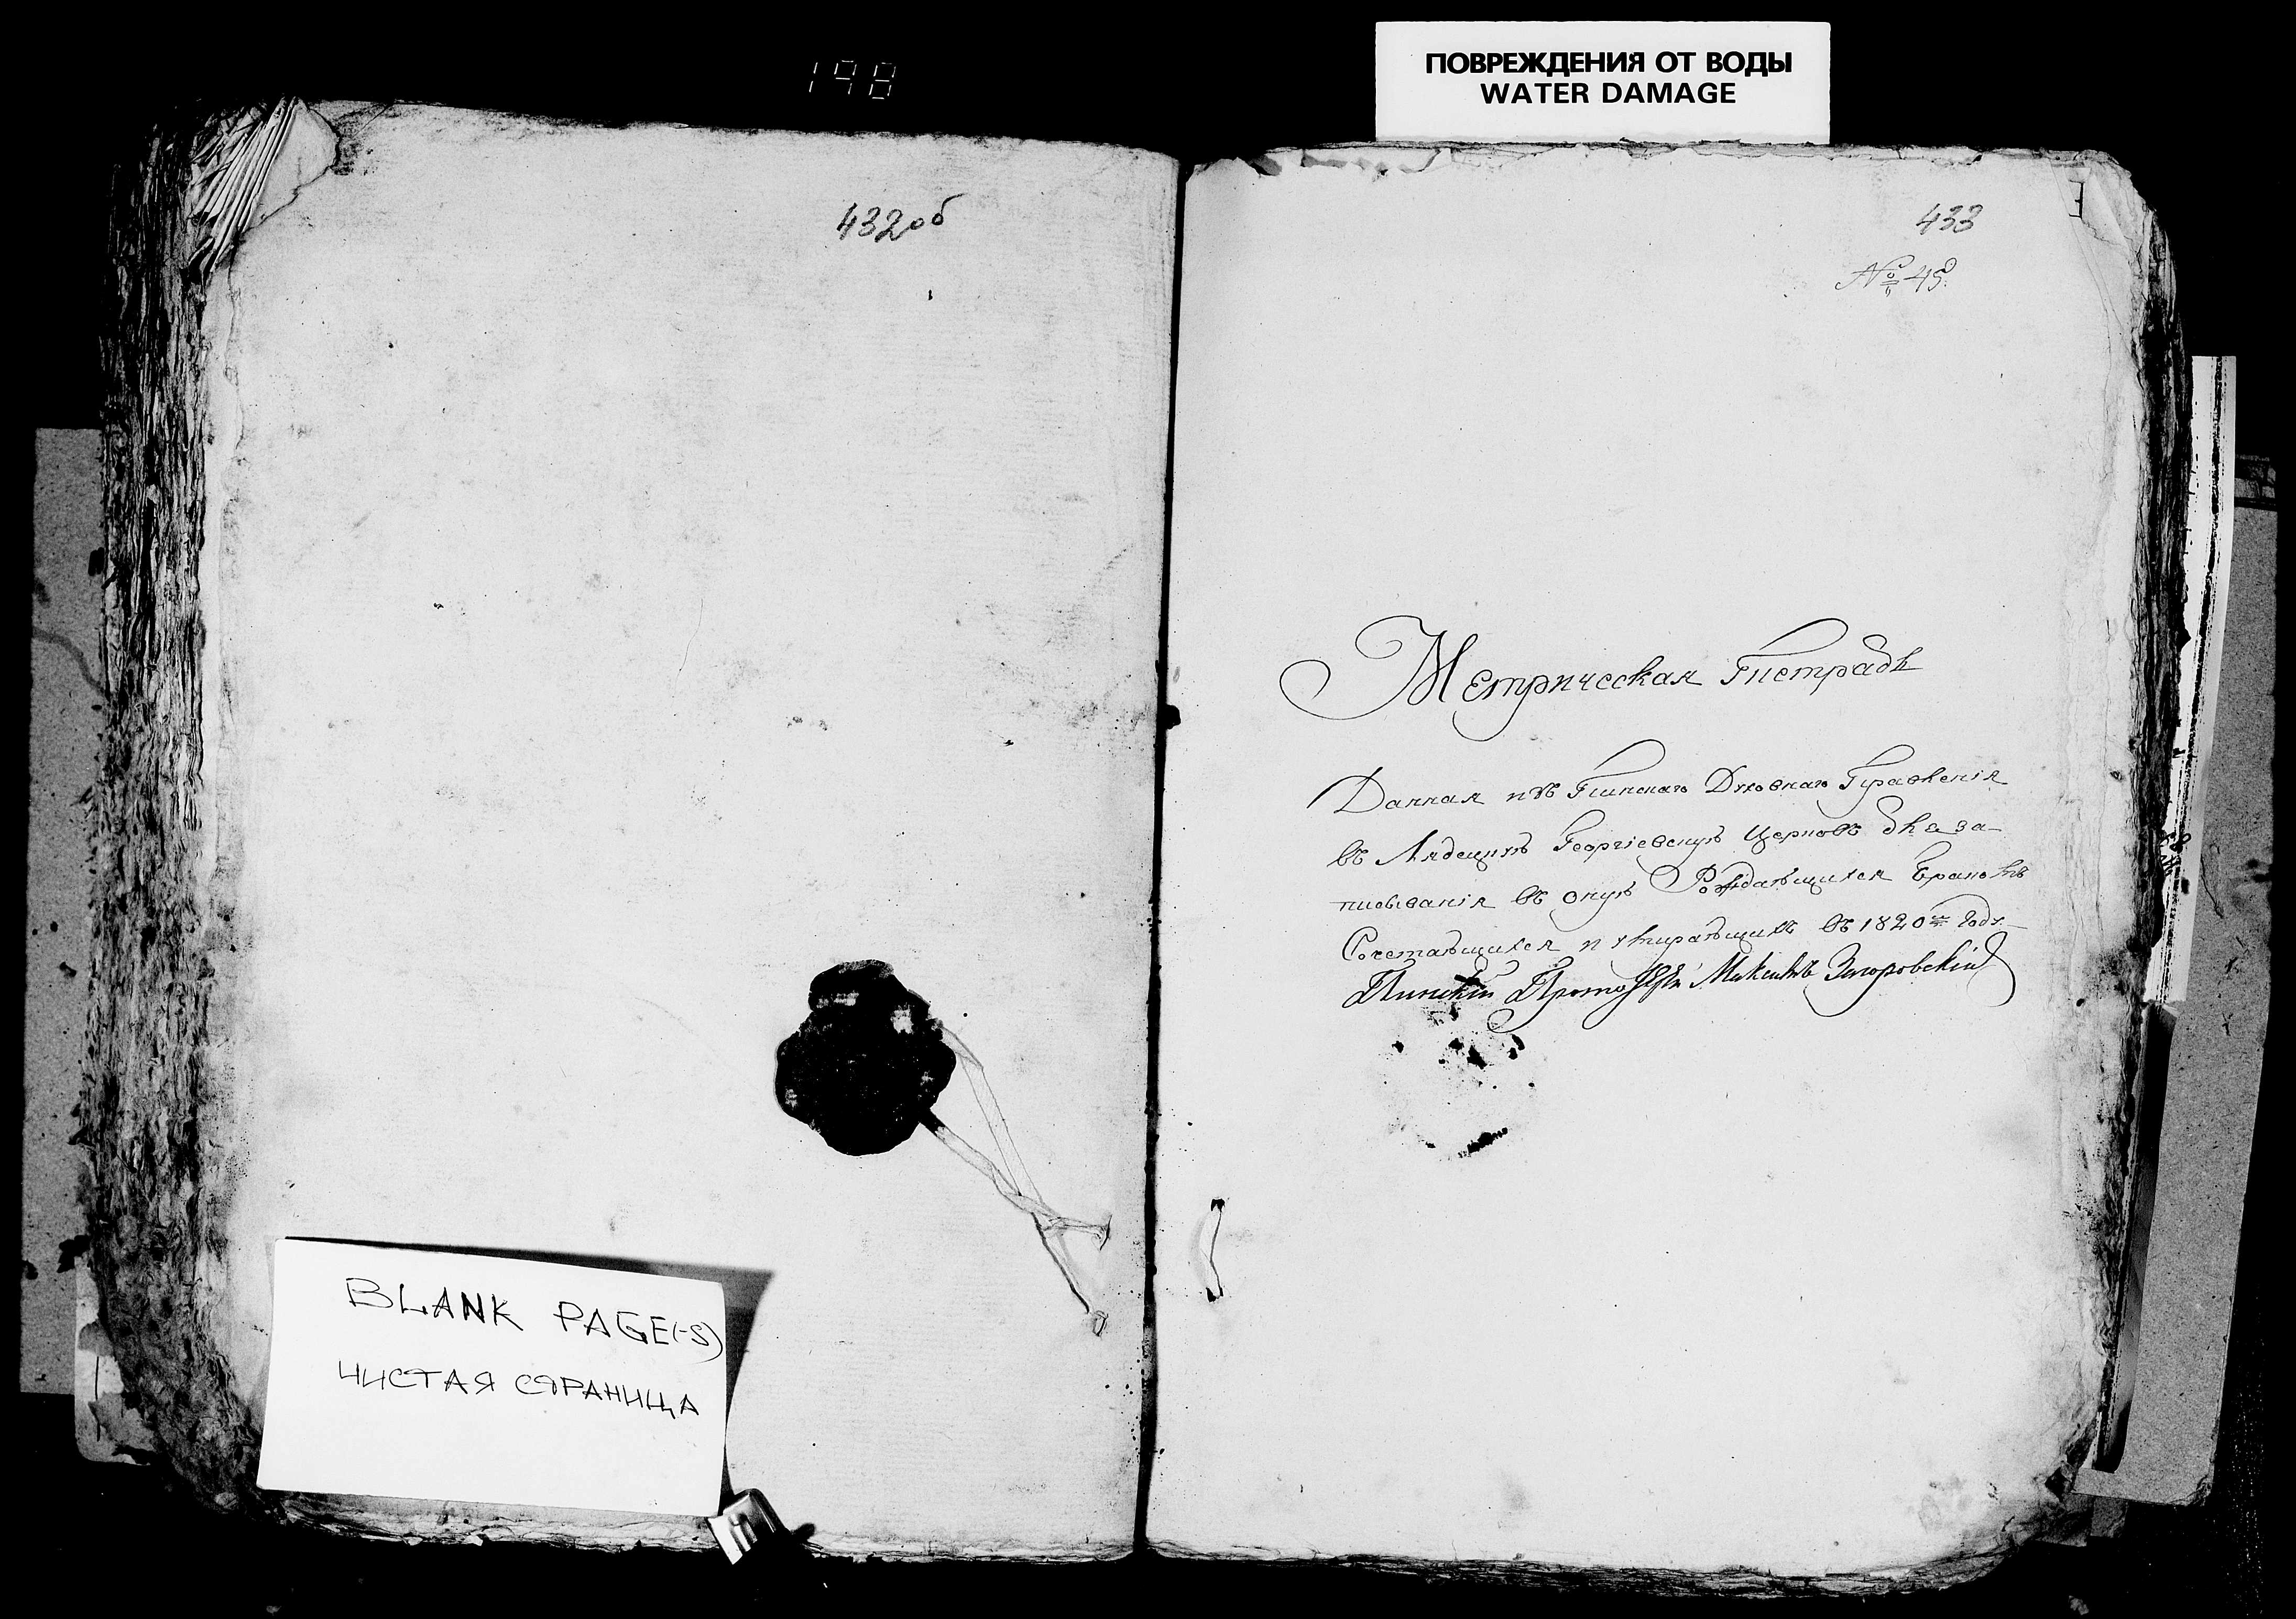 198
ПОВРЕЖДЕНИЯ ОТ ВОДЫ
WATER DAMAGE
432об
433
№ 45
Метрическая Тетрадь
Данная изъ Пинскаго Духовнаго Правленія
въ Георгіевскую Церковь для за
писыванія въ оную Рождающихся Бракомъ
Сочетающихся и умирающихъ въ 1820м Году
Пинскій Протоіерей
BLANK PAGE(-S)
ЧИСТАЯ СТРАНИЦА